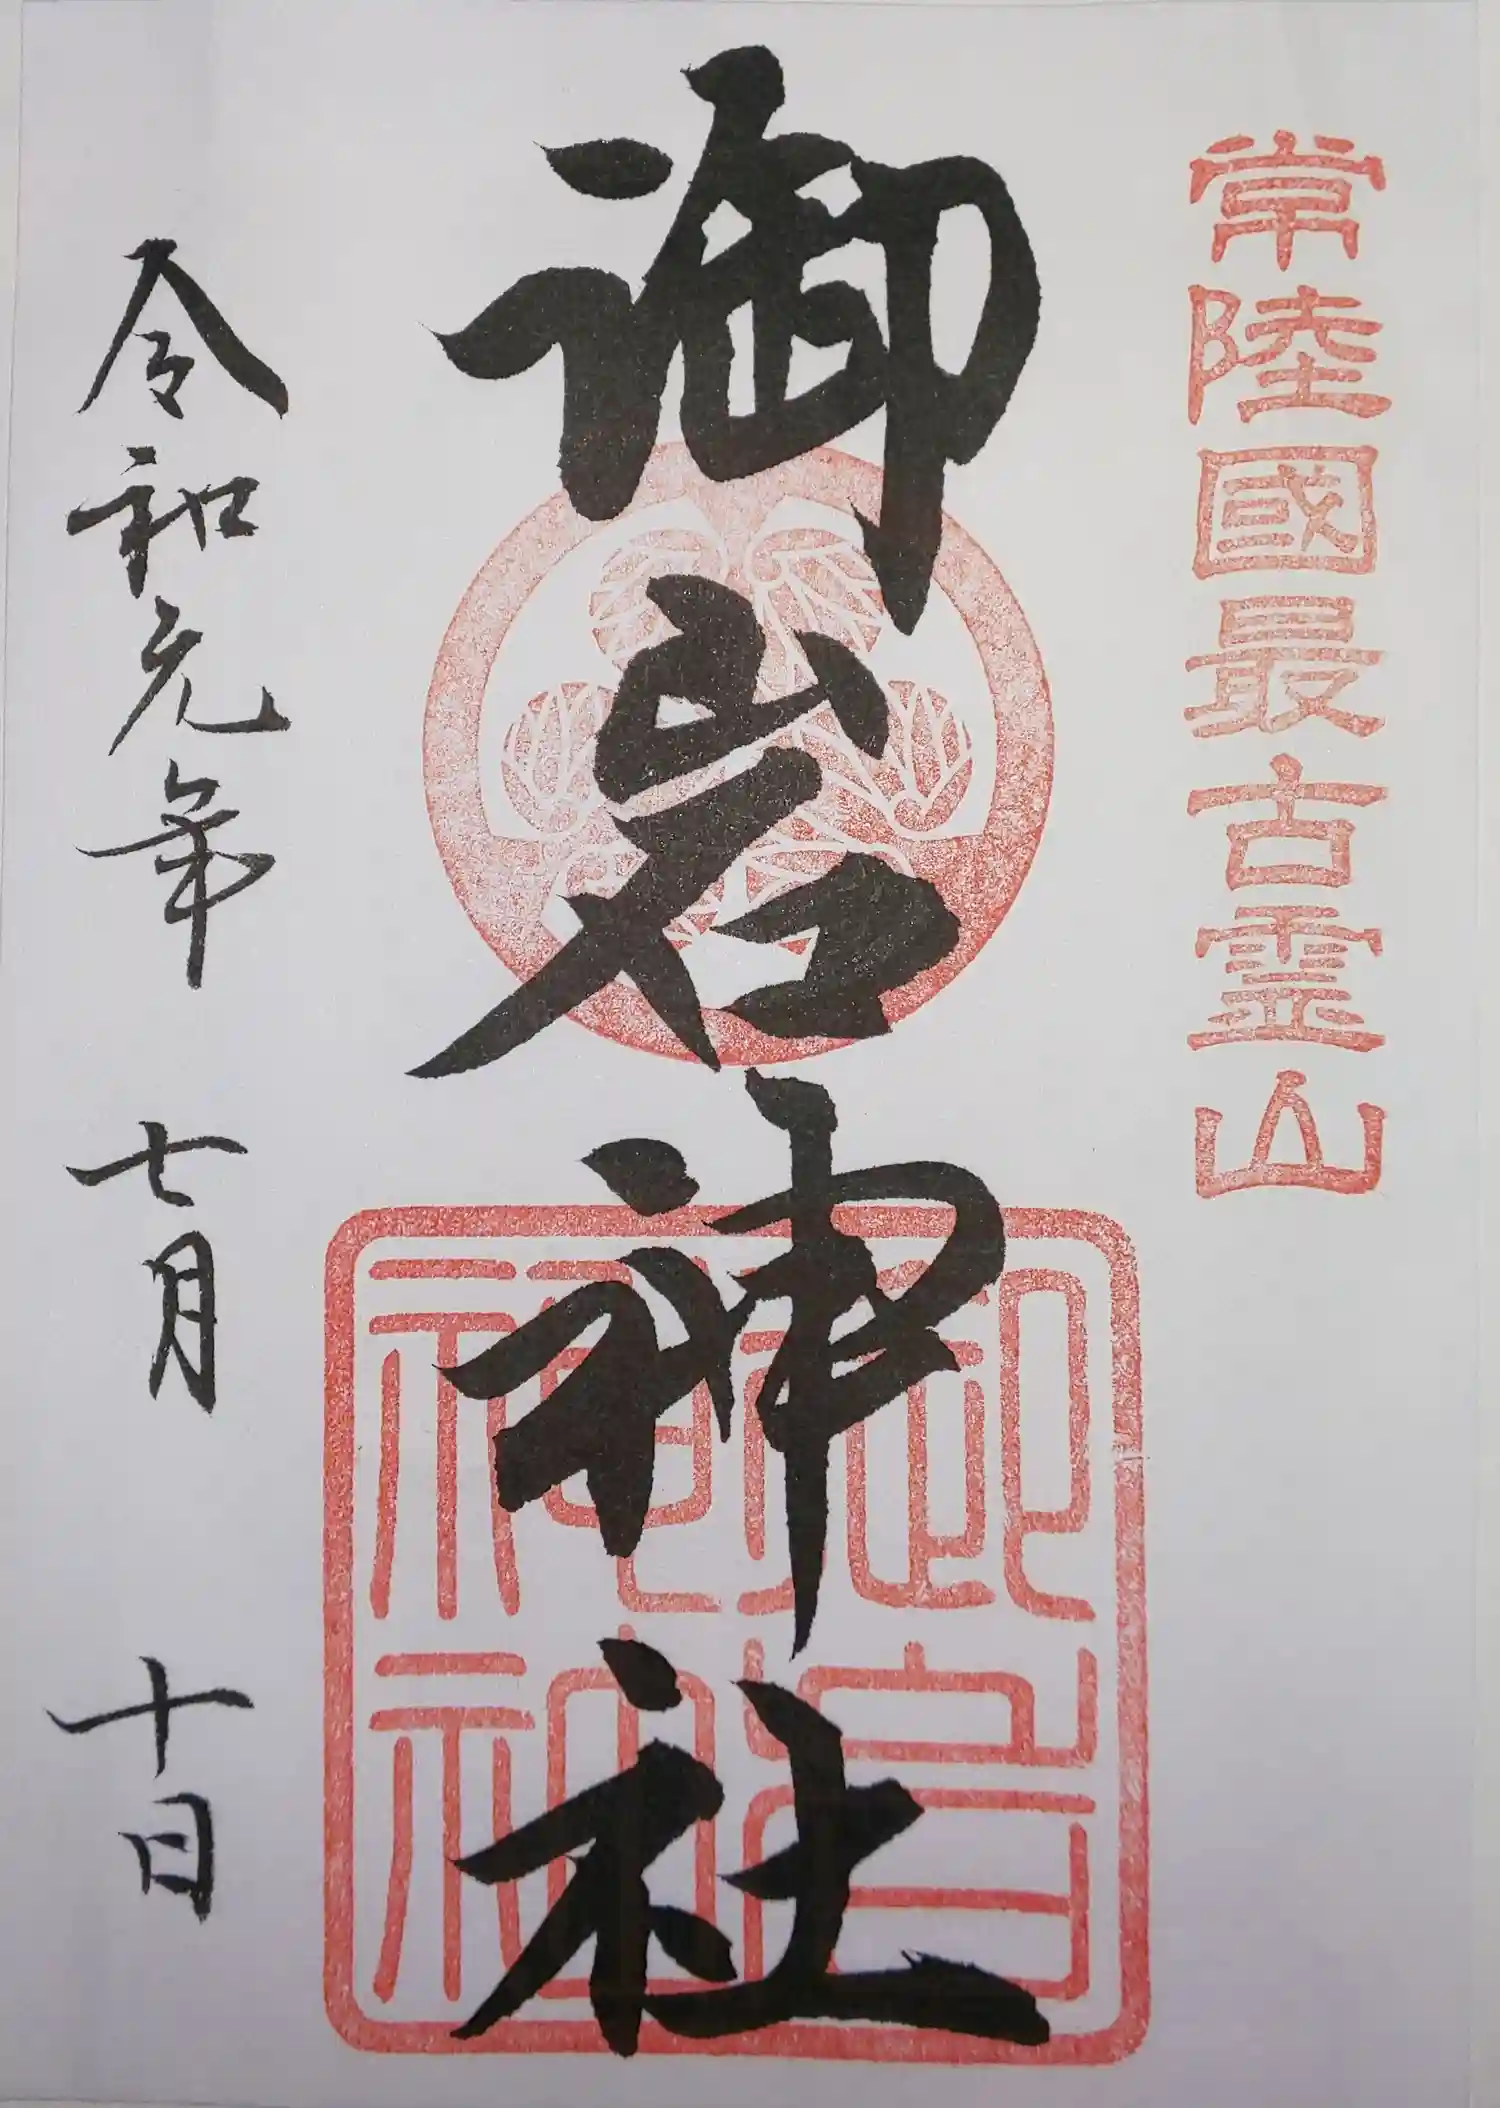 常陸國最古霊山
御岩神社
令和元年 七月 十日